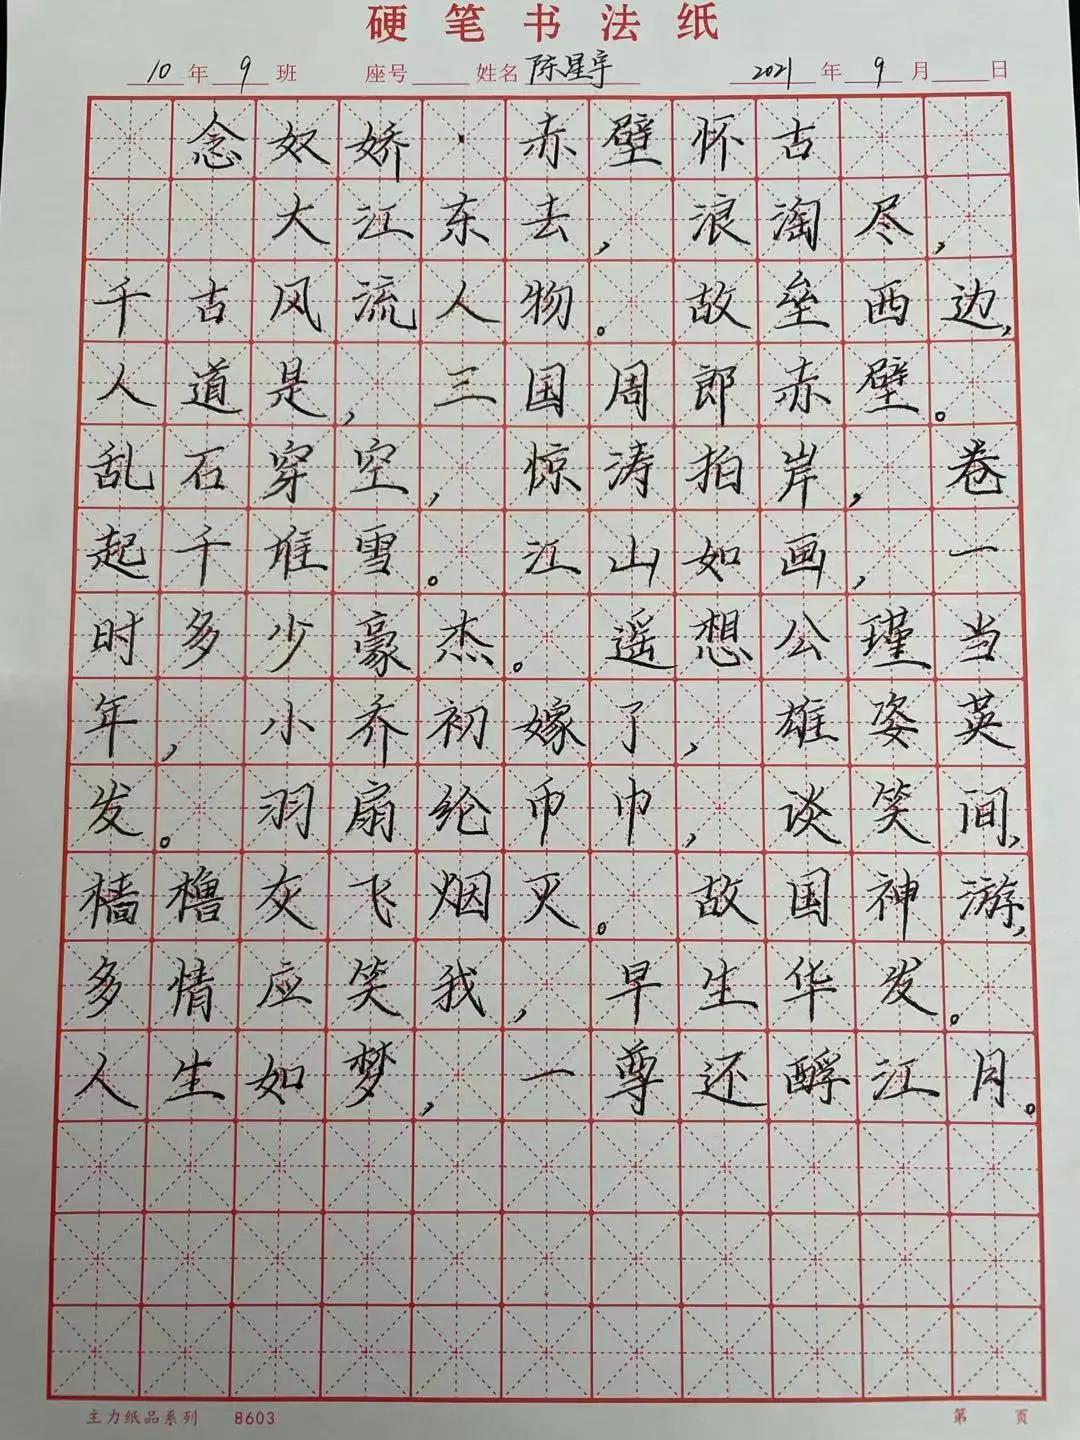 硬笔书法纸
10年9班 座号 姓名陈星宇 2021年9月 日
念奴娇·赤壁怀古
大江东去，浪淘尽，
千古风流人物。故垒西边，
人道是，三国周郎赤壁。
乱石穿空，惊涛拍岸，卷
起千堆雪。江山如画，一
时多少豪杰。遥想公瑾当
年，小乔初嫁了，雄姿英
发。羽扇纶巾巾，谈笑间，
樯橹灰飞烟灭。故国神游，
多情应笑我，早生华发。
人生如梦，一尊还酹江月。
主力纸品系列 8603 第 页